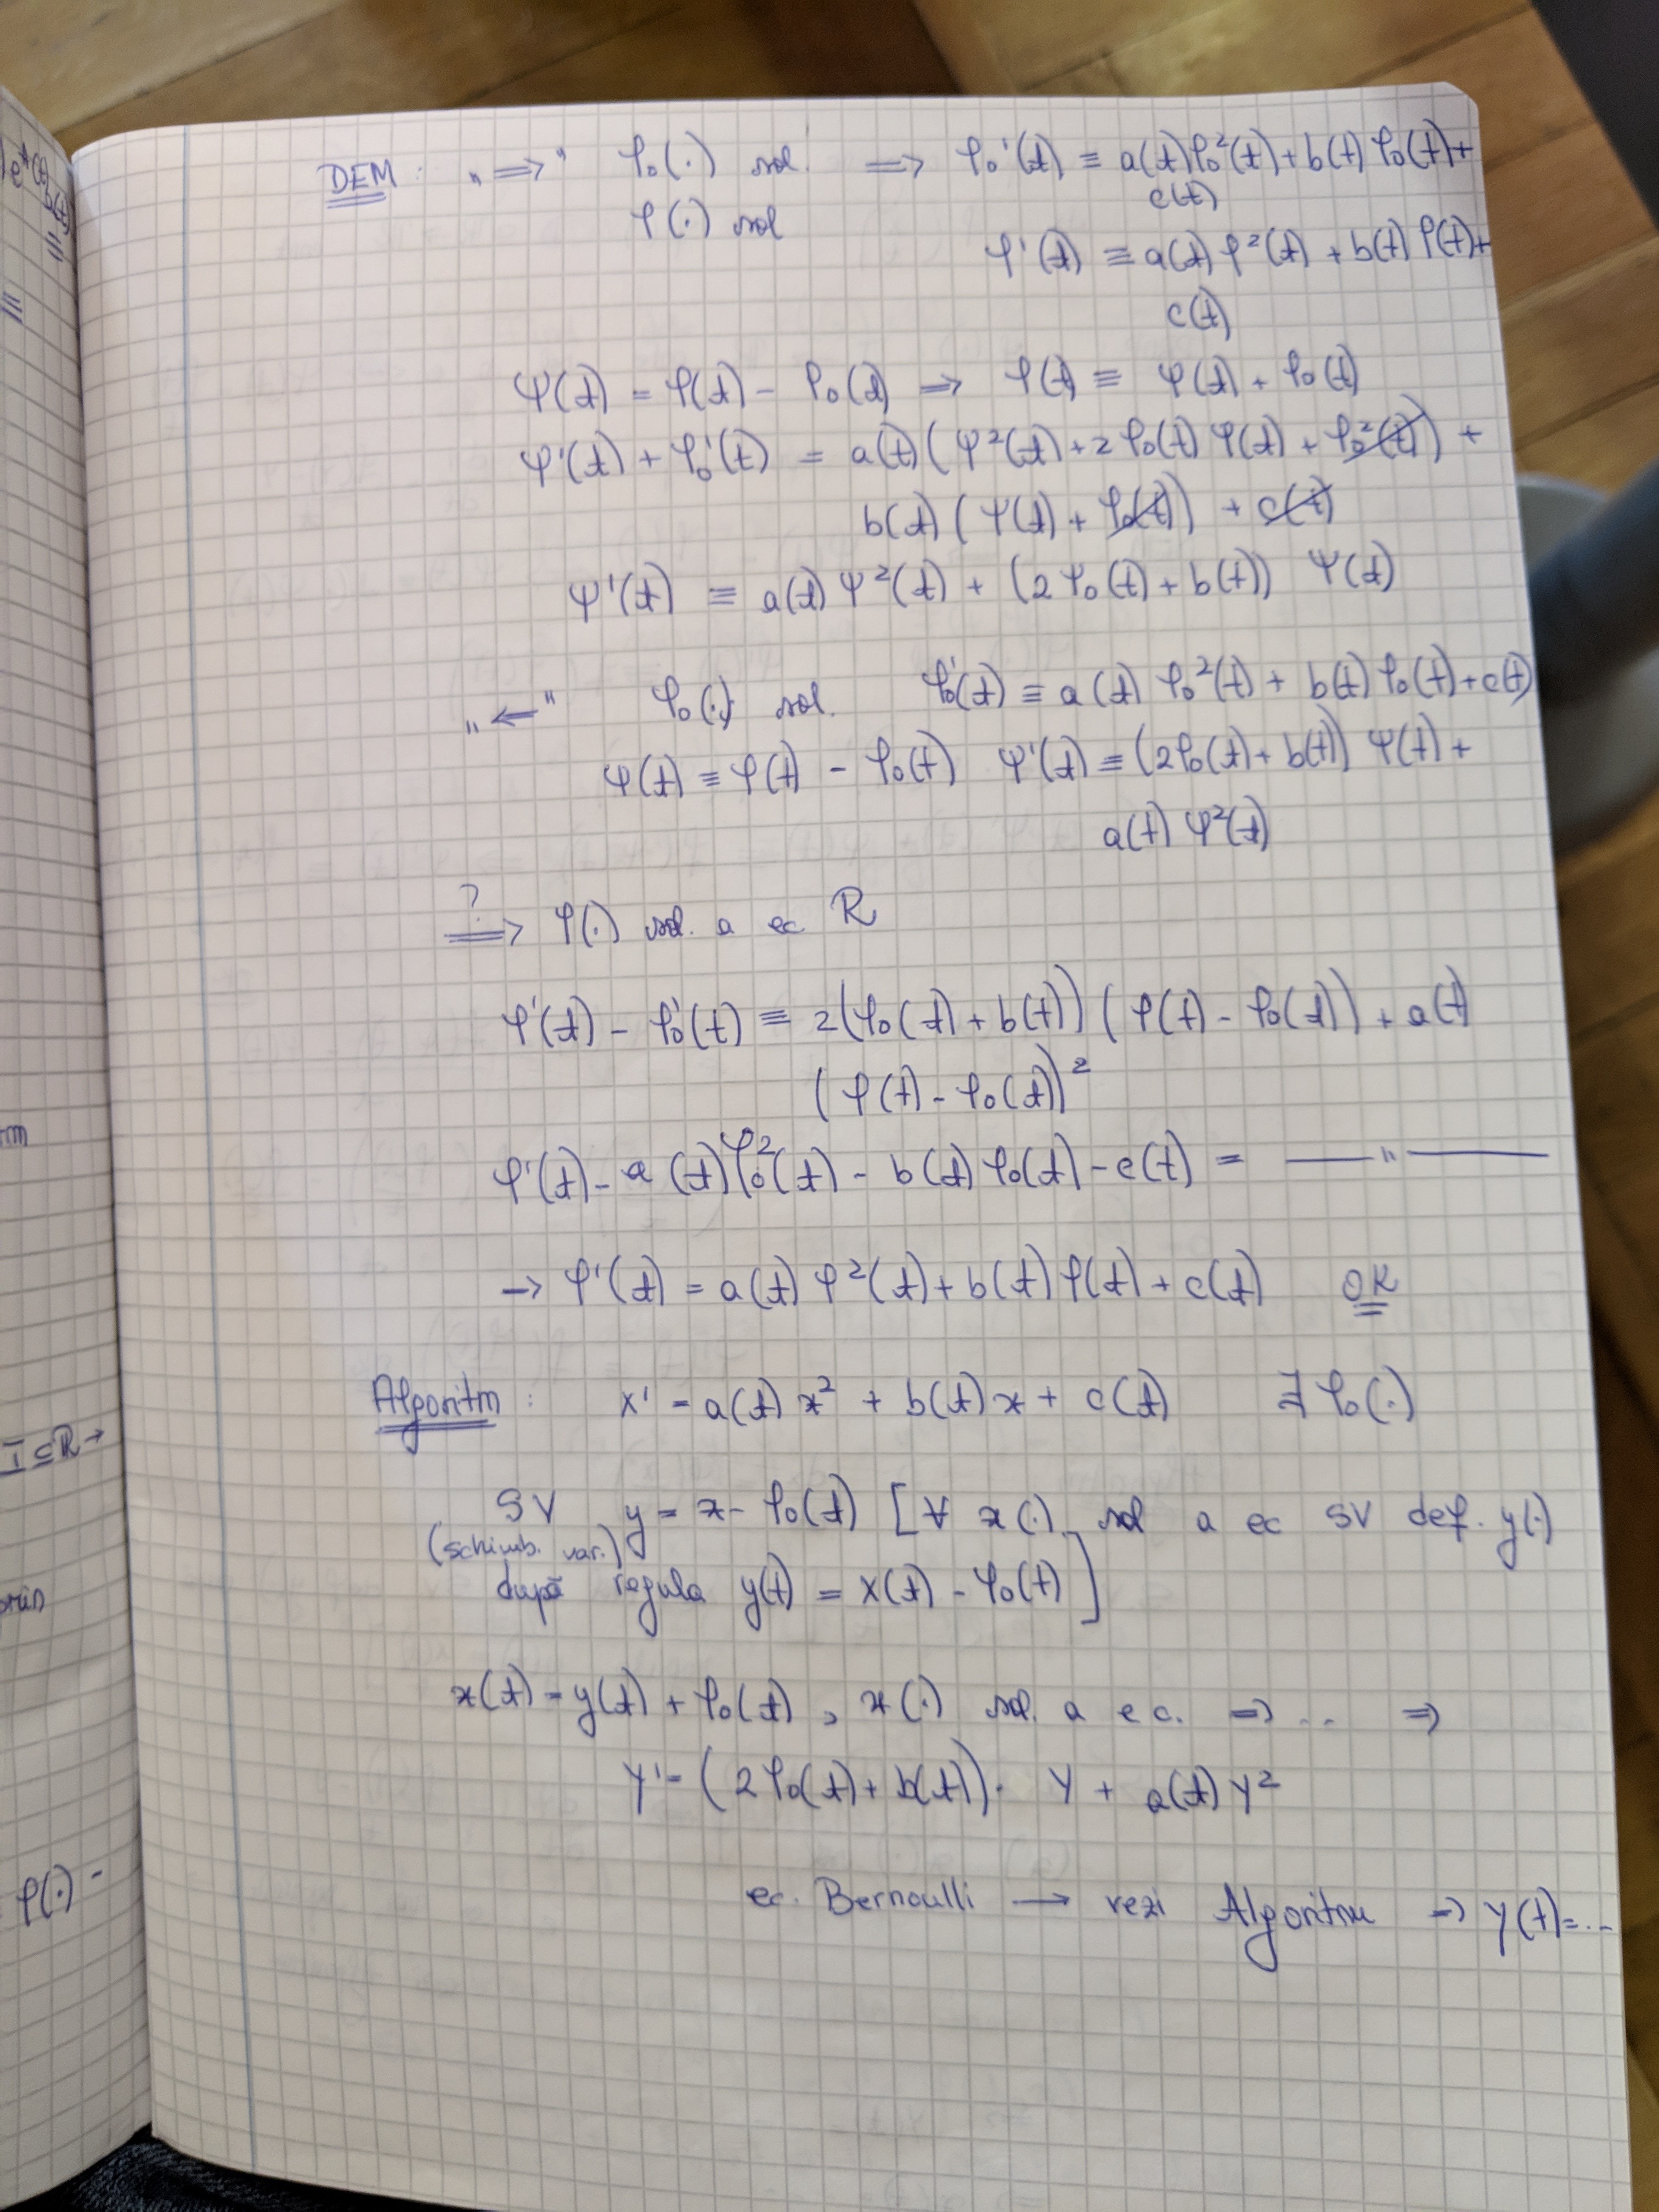 DEM : „⇒" φ₀(·) sol. ⇒ φ₀'(t) ≡ a(t)φ₀²(t)+b(t)φ₀(t)+
c(t)
φ(·) sol
φ'(t) ≡ a(t)φ²(t)+b(t)φ(t)+
c(t)
ψ(t) = φ(t) - φ₀(t) ⇒ φ(t) ≡ ψ(t) + φ₀(t)
ψ'(t) + φ₀'(t) = a(t)(ψ²(t)+2φ₀(t)ψ(t) + φ₀²(t)) +
b(t)(ψ(t) + φ₀(t)) + c(t)
ψ'(t) ≡ a(t)ψ²(t) + (2φ₀(t)+b(t)) ψ(t)
„←" φ₀(·) sol. φ₀'(t) ≡ a(t) φ₀²(t) + b(t)φ₀(t)+c(t)
ψ(t) ≡ φ(t) - φ₀(t) ψ'(t) ≡ (2φ₀(t)+b(t)) ψ(t) +
a(t)ψ²(t)
?
⇒ φ(·) sol. a ec. R
φ'(t) - φ₀'(t) ≡ 2(φ₀(t)+b(t))(φ(t) - φ₀(t)) + a(t)
(φ(t) - φ₀(t))²
φ'(t) - a(t)φ₀²(t) - b(t)φ₀(t) - c(t) = —— " ——
→ φ'(t) = a(t)φ²(t)+b(t)φ(t)+c(t) OK
Algoritm : x' = a(t)x² + b(t)x + c(t) ∃ φ₀(·)
SV y = x - φ₀(t) [∀ x(·) sol a ec SV def. y(·)
(schimb. var.)
după regula y(t) = x(t) - φ₀(t)]
x(t) = y(t) + φ₀(t) , x(·) sol. a ec. ⇒ ... ⇒
y' = (2φ₀(t)+b(t))· y + a(t)y²
ec. Bernoulli → vezi Algoritm ⇒ y(t)=...
I ⊆ R →
φ(·) -